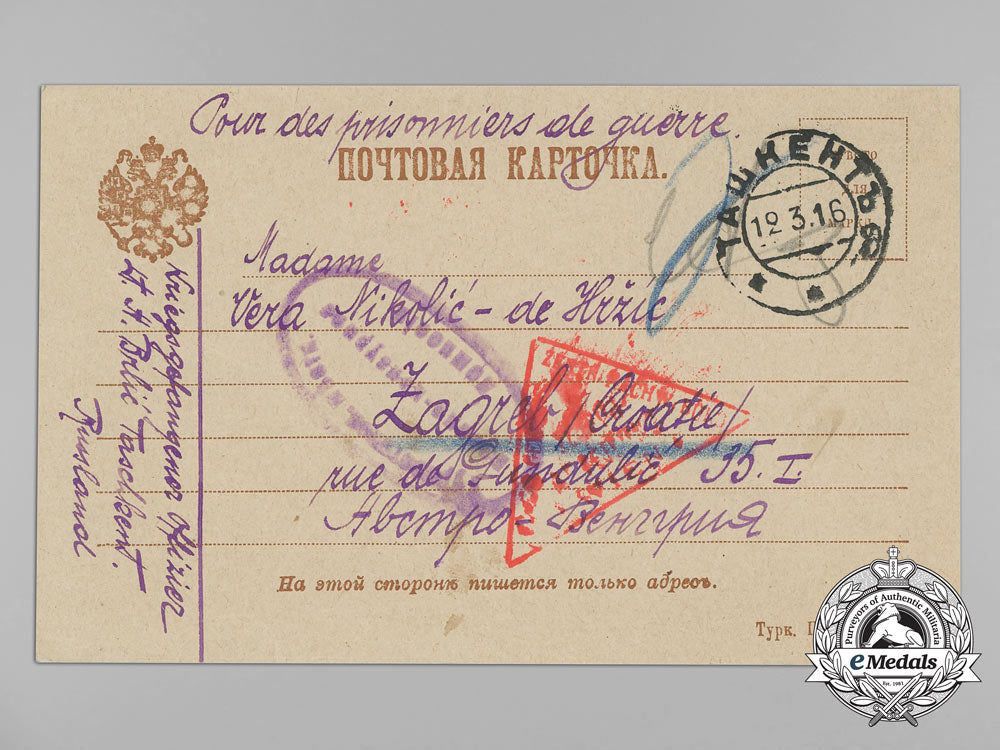 Pour des prisonniers de guerre.
ПОЧТОВАЯ КАРТОЧКА.
ТАШКЕНТЪ
12 3.16
Madame
Vera Nikolić - de Hržić
Zagreb / Croatie /
rue de Gundulić 35. I.
Австро-Венгрия
На этой сторонѣ пишется только адресъ.
Турк.
Kriegsgefangener Offizier
Lt. A. Brlić Taschkent.
Russland
Purveyors of Authentic Militaria
eMedals
Est. 1981